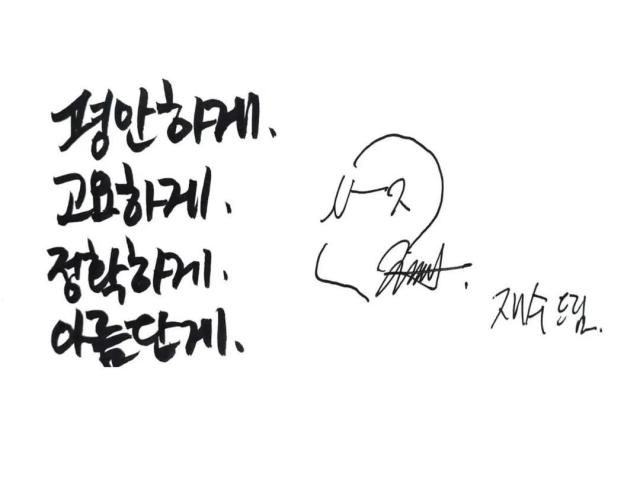 평안하게.
고요하게.
정확하게.
아름답게.
재수 드림.